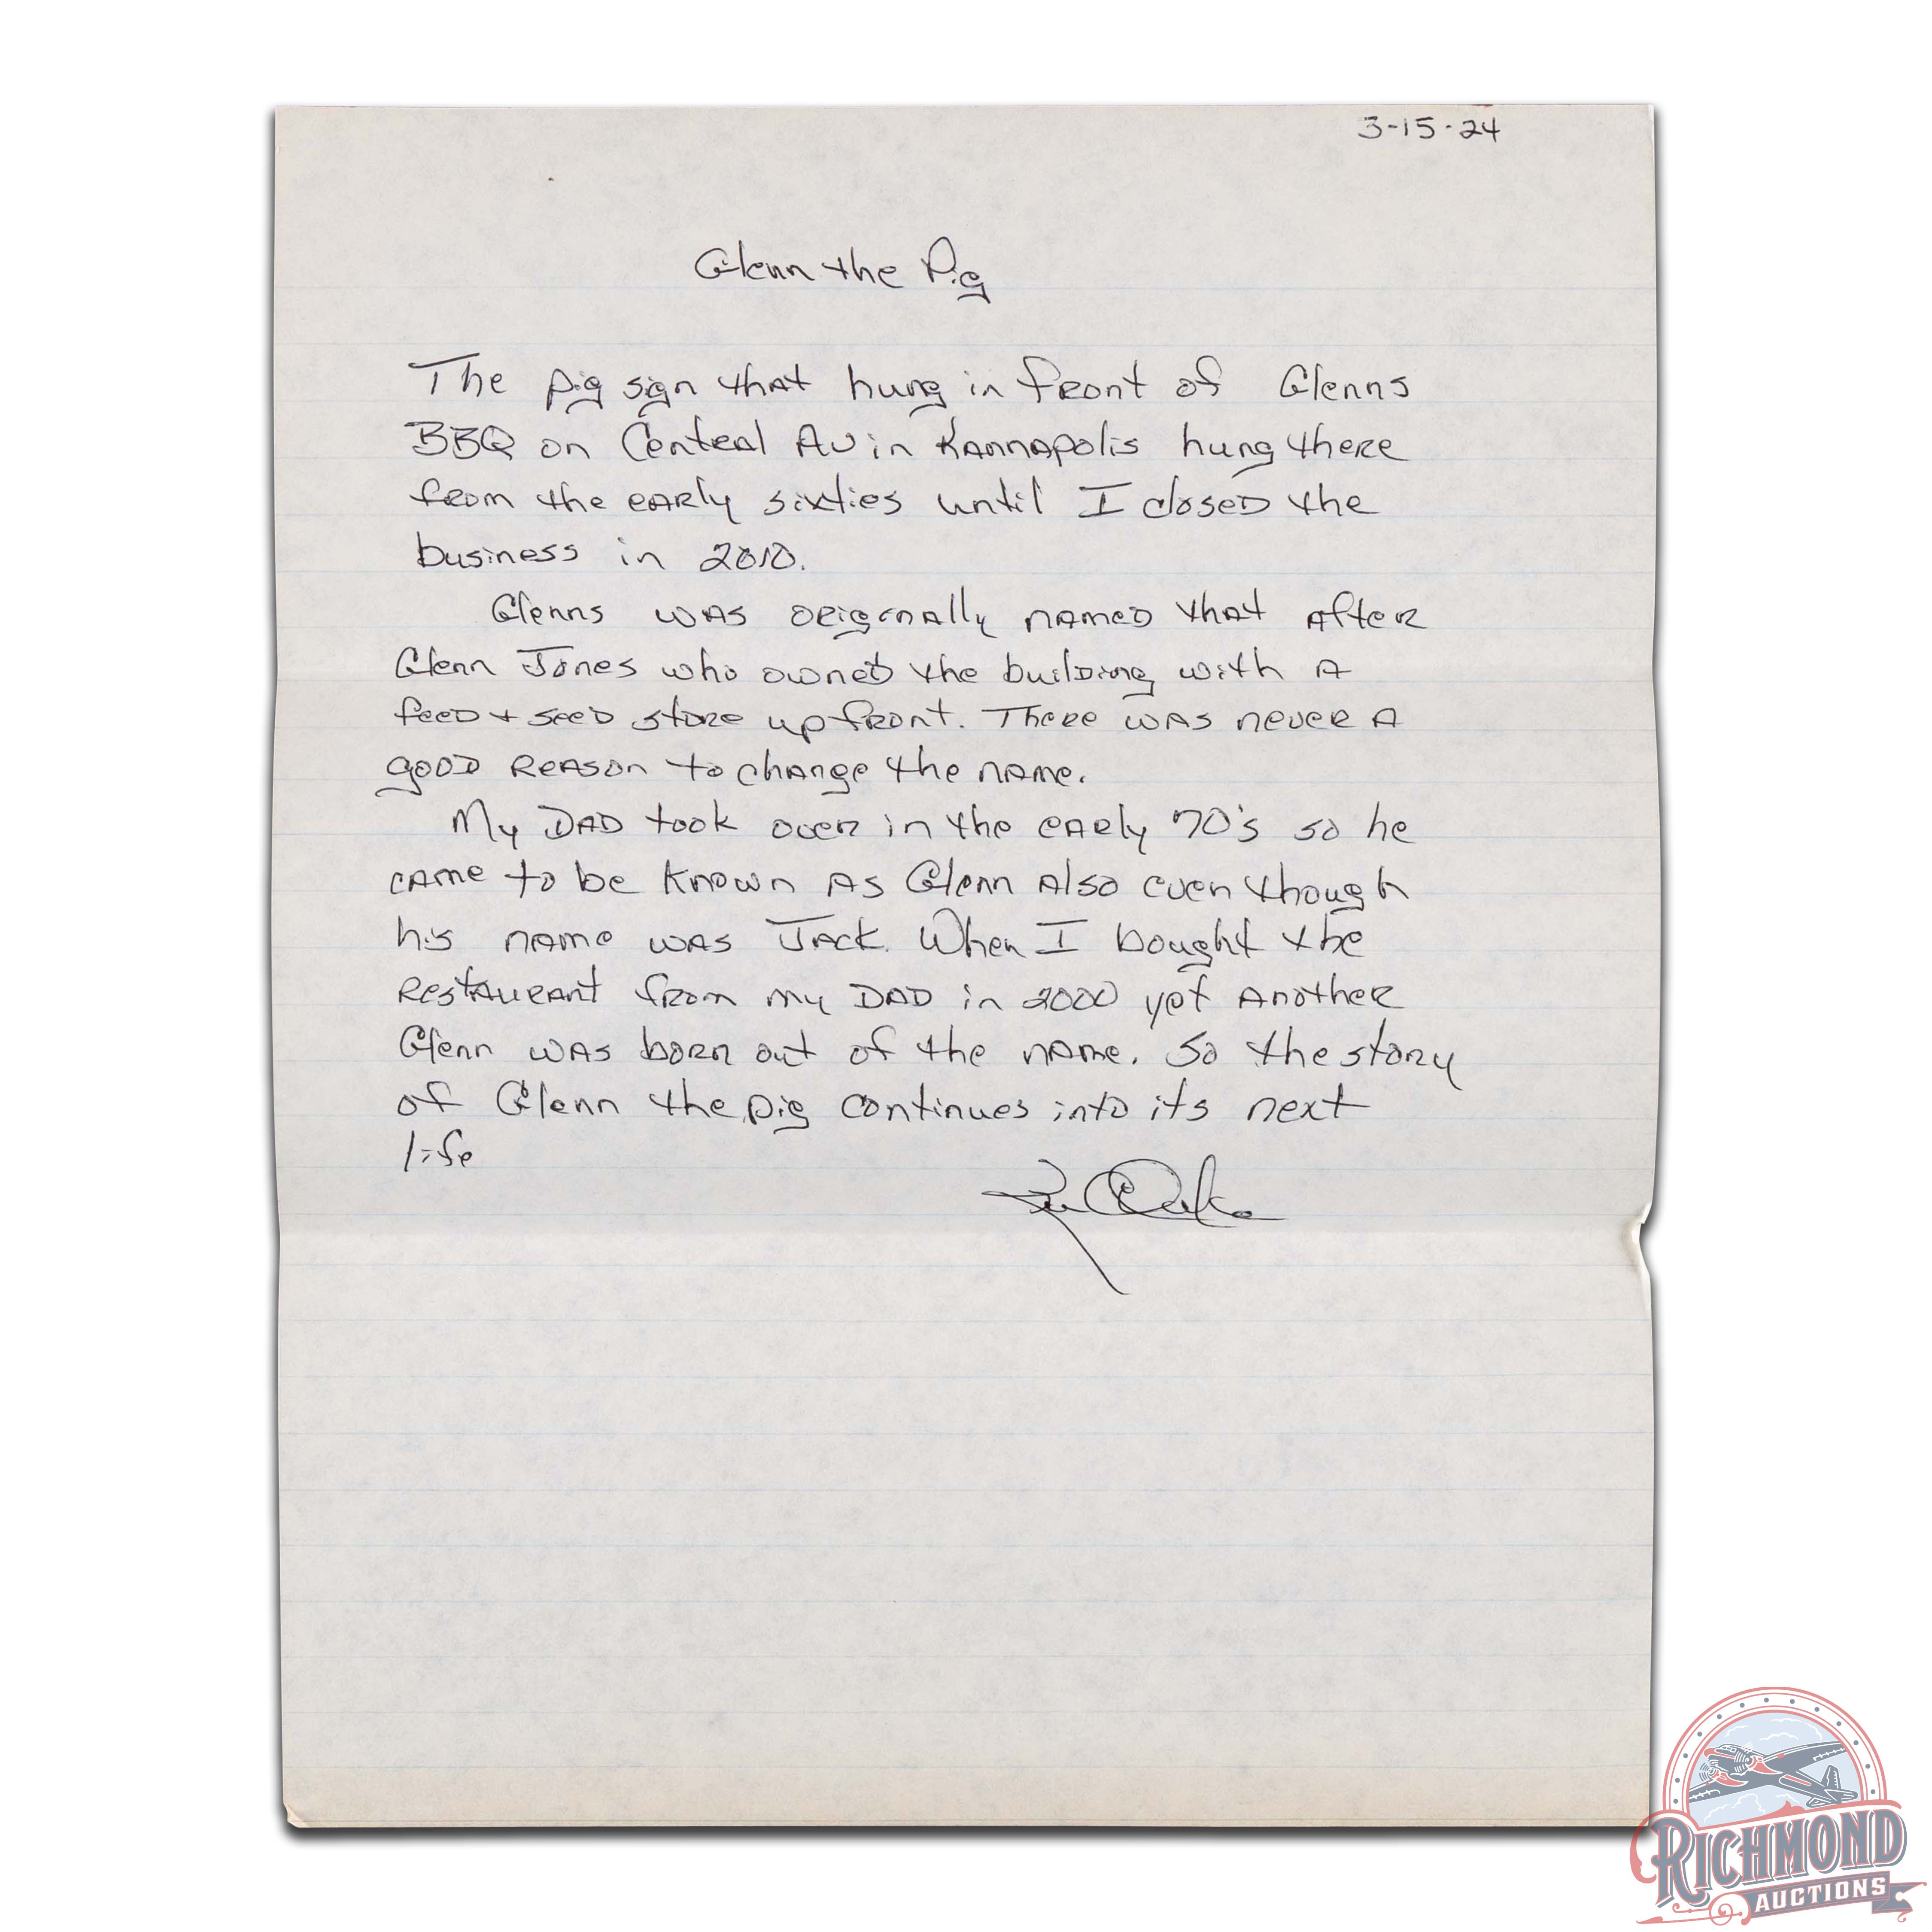 3-15-24
Glenn the Pig
The pig sign that hung in front of Glenns
BBQ on Central Av in Kannapolis hung there
from the early sixties until I closed the
business in 2010.
Glenns was originally named that after
Glenn Jones who owned the building with a
feed + seed store up front. There was never a
good reason to change the name.
My Dad took over in the early 70's so he
came to be known as Glenn also even though
his name was Jack. When I bought the
restaurant from my Dad in 2000 yet another
Glenn was born out of the name. So the story
of Glenn the pig continues into its next
life
RICHMOND
AUCTIONS